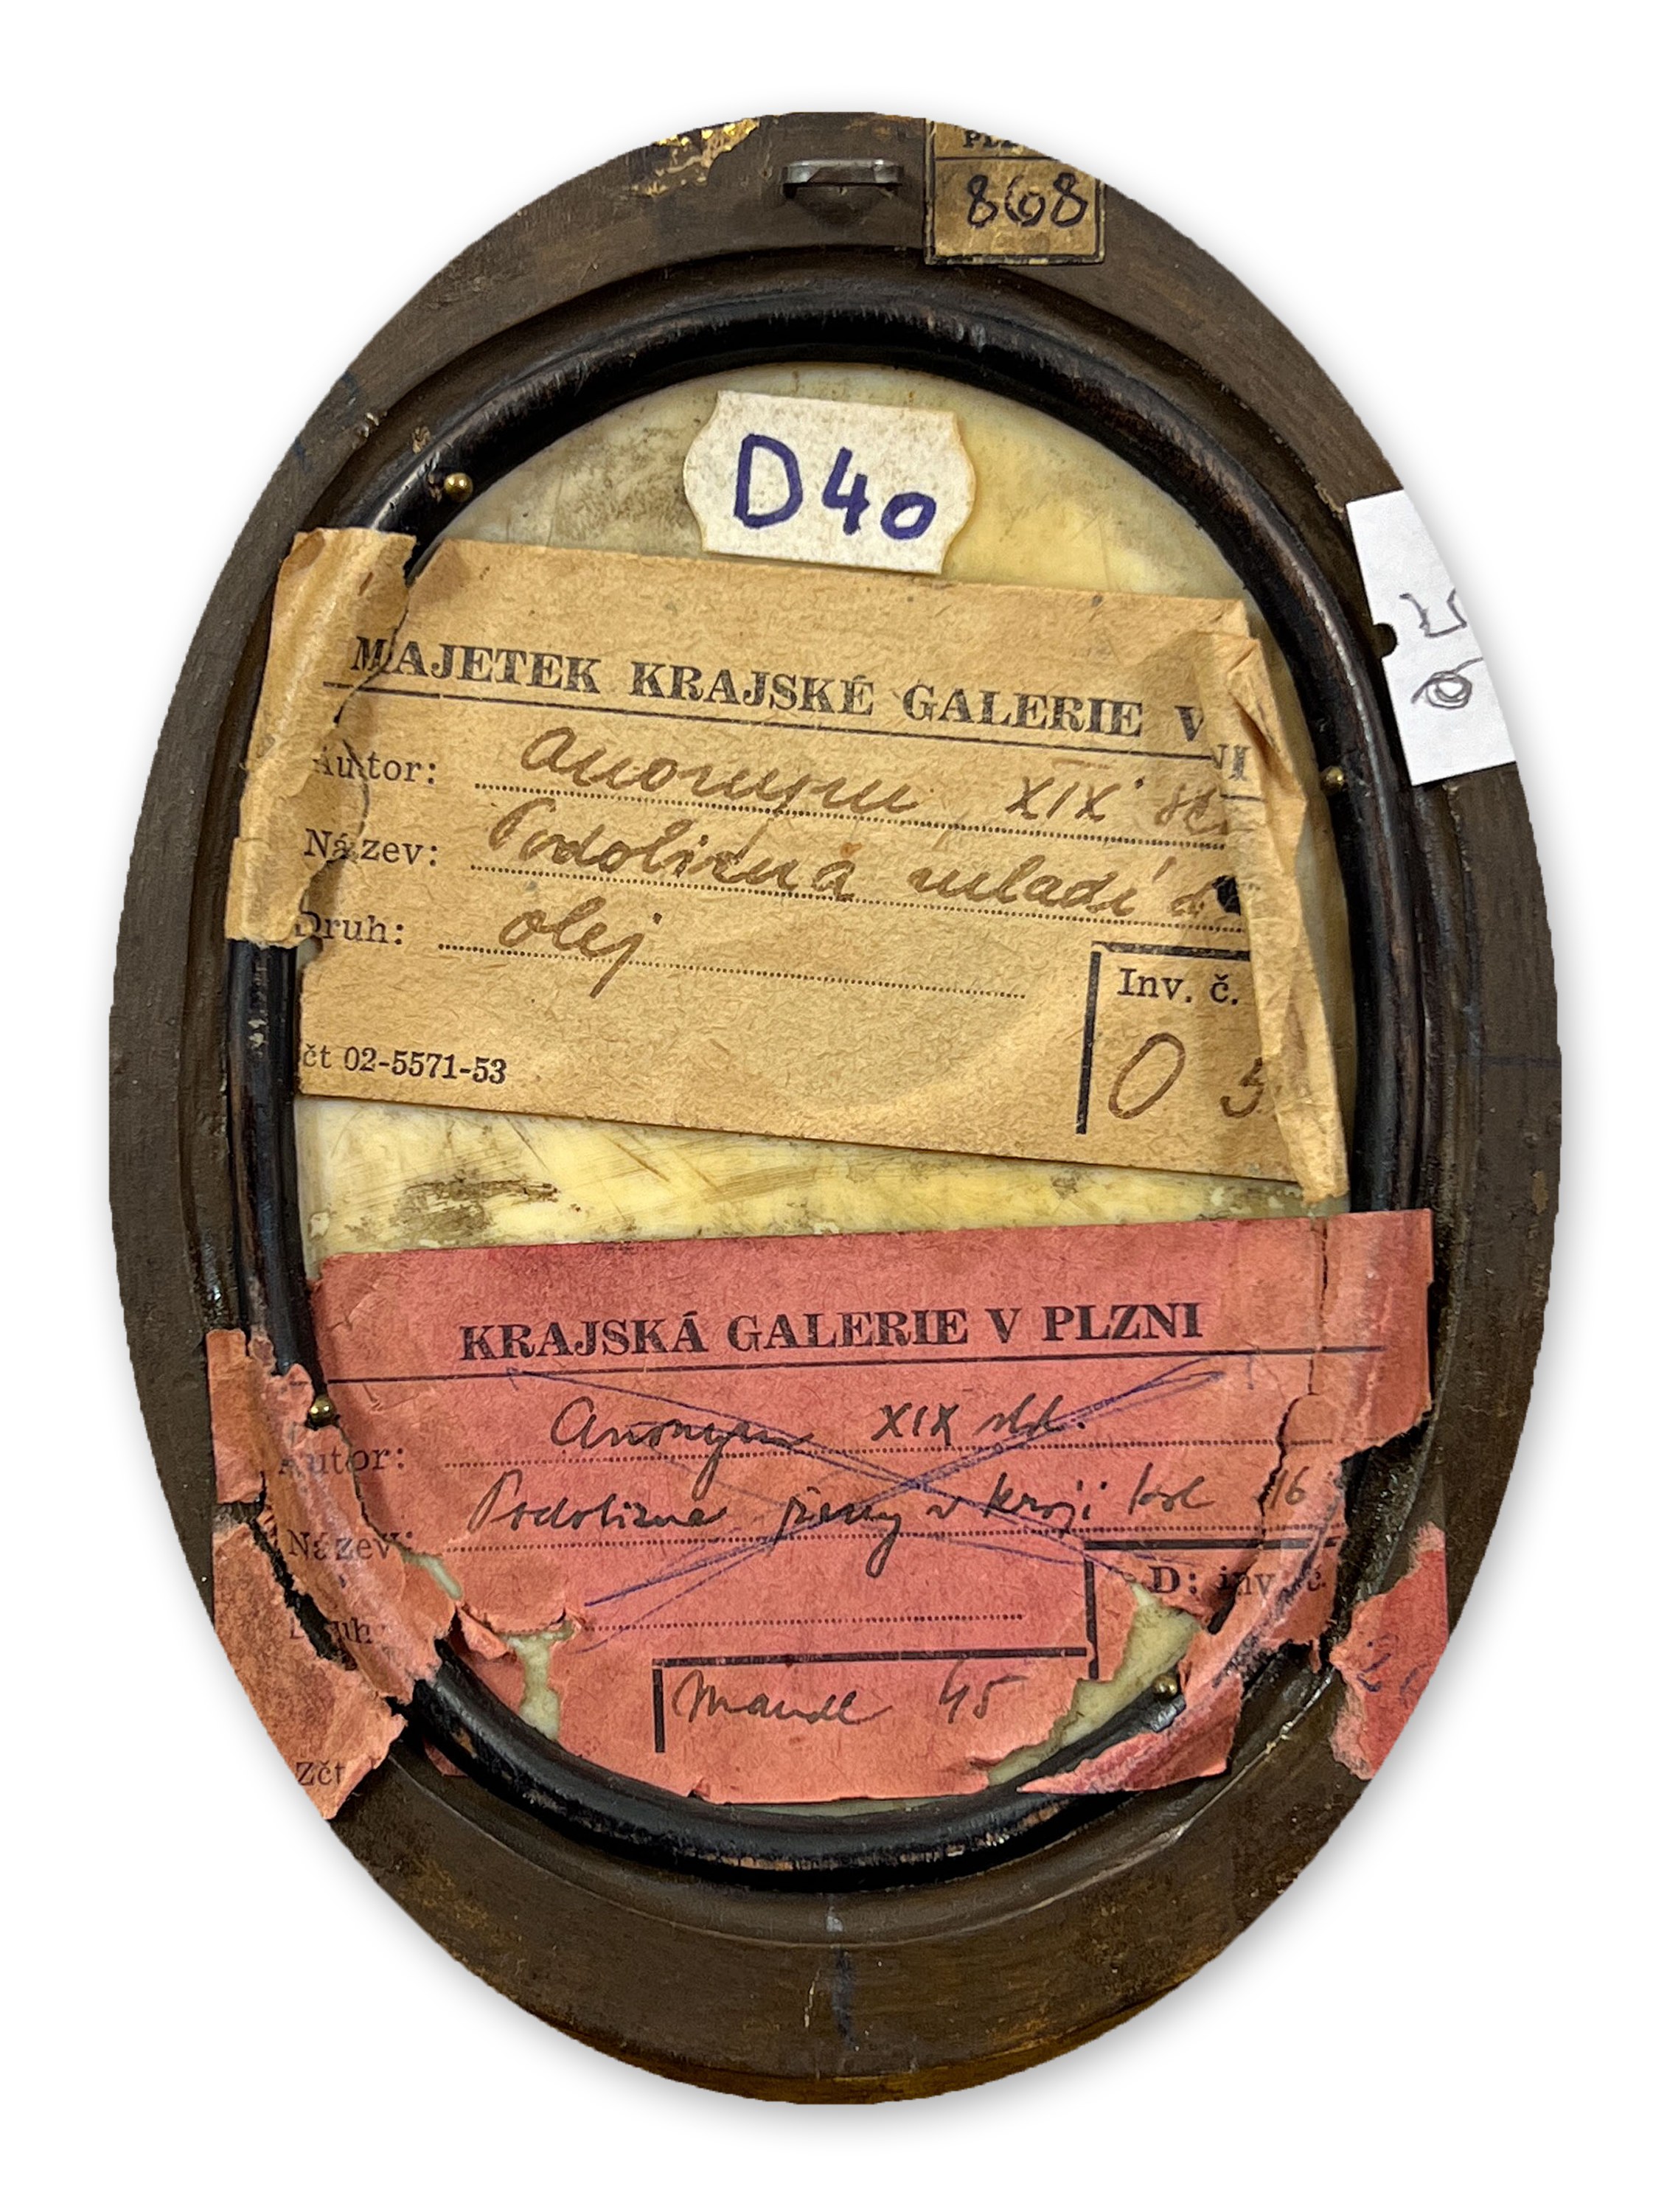 868
D40
MAJETEK KRAJSKÉ GALERIE V NI
Autor: anonym XIX st.
Název: Podobizná mladí
Druh: olej
Inv. č.
O 5
čt 02-5571-53
KRAJSKÁ GALERIE V PLZNI
Autor: Anonym XIX stol.
Název: Podobizna ženy v kroji kol 16
Druh:
D: inv. č.
Mandl 45
Zčt